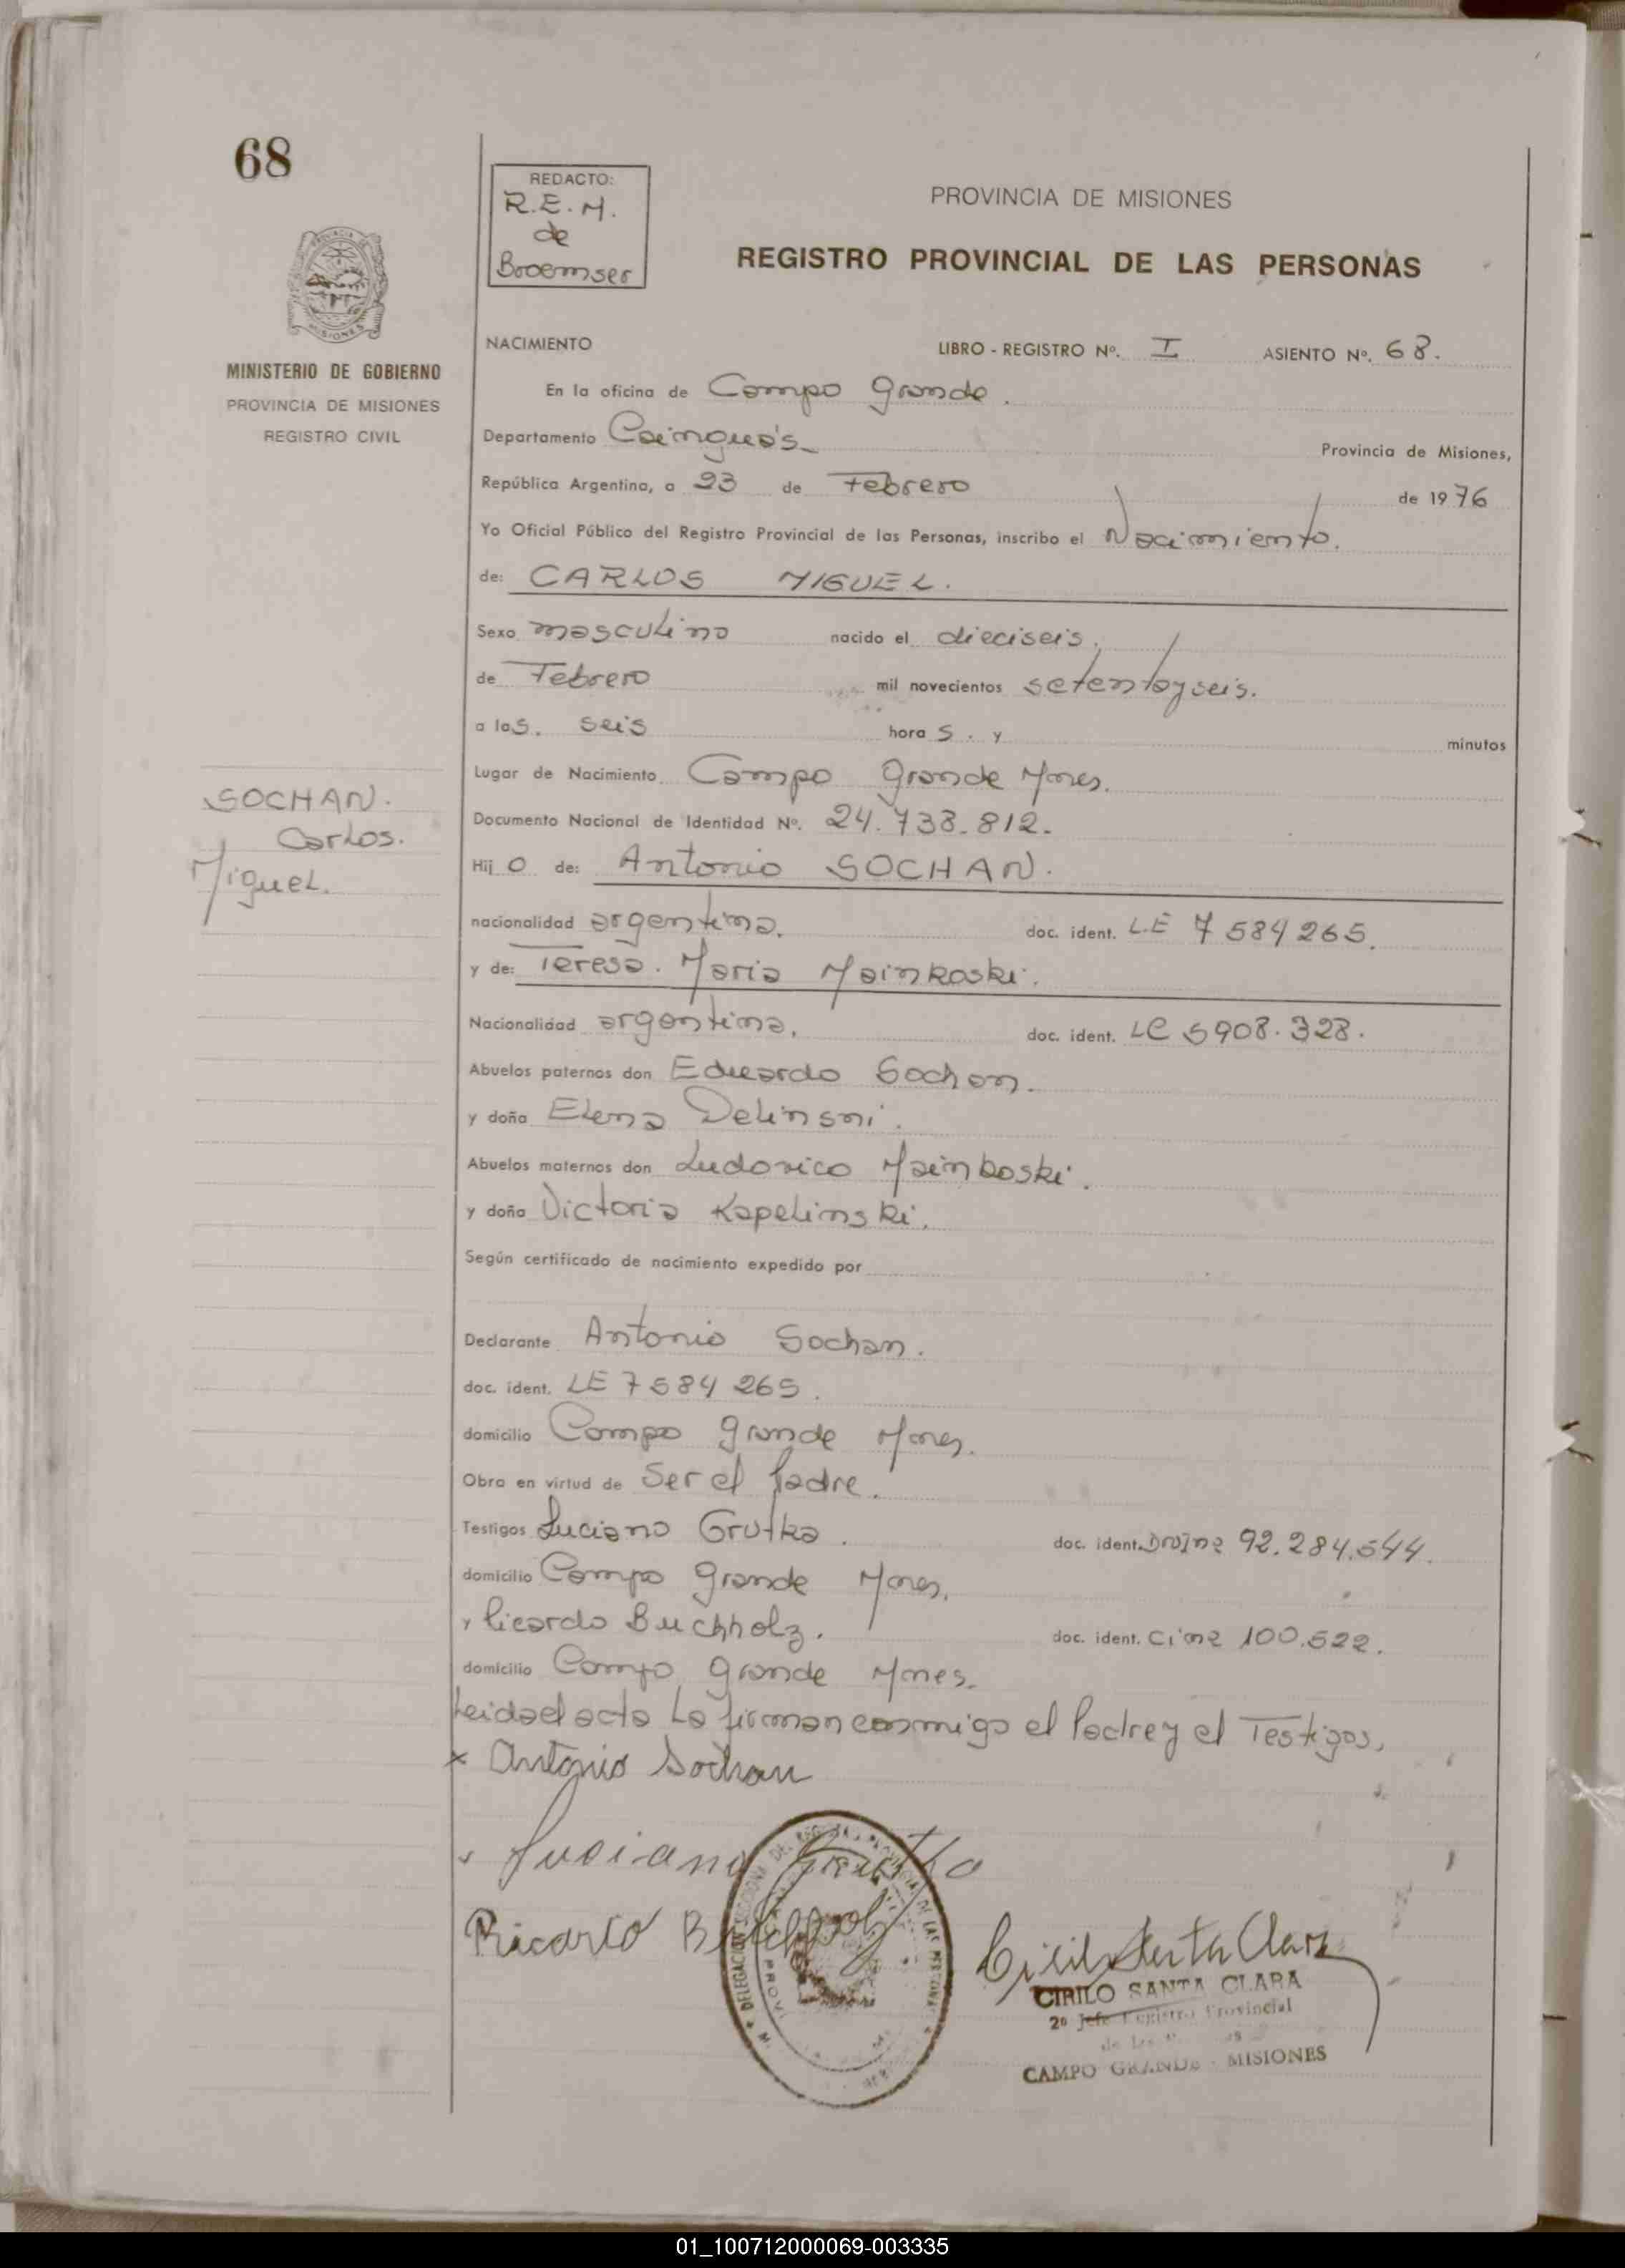 68
REDACTO:
R.E.M.
de
Broemser
PROVINCIA DE MISIONES
REGISTRO PROVINCIAL DE LAS PERSONAS
MINISTERIO DE GOBIERNO
PROVINCIA DE MISIONES
REGISTRO CIVIL
NACIMIENTO LIBRO - REGISTRO Nº. I ASIENTO Nº. 68.
En la oficina de Campo Grande.
Departamento Cainguás Provincia de Misiones,
República Argentina, a 23 de Febrero de 1976
Yo Oficial Público del Registro Provincial de las Personas, inscribo el Nacimiento.
de: CARLOS MIGUEL.
Sexo masculino nacido el dieciseis.
de Febrero mil novecientos setentayseis.
a las. seis horas. y minutos
Lugar de Nacimiento Campo Grande Mnes.
Documento Nacional de Identidad Nº. 24.738.812.
SOCHAN.
Carlos.
Miguel.
Hijo de: Antonio SOCHAN.
nacionalidad argentina. doc. ident. L.E 7584265.
y de: Teresa. Maria Mainkoski.
Nacionalidad argentina. doc. ident. LC 5908.328.
Abuelos paternos don Eduardo Sochan.
y doña Elena Delinsni.
Abuelos maternos don Ludovico Mainkoski.
y doña Victoria Kapelinski.
Según certificado de nacimiento expedido por
Declarante Antonio Sochan.
doc. ident. LE 7584265.
domicilio Campo Grande Mnes.
Obra en virtud de Ser el Padre.
Testigos Luciano Grutka. doc. ident. 92.284.544.
domicilio Campo Grande Mnes.
y Ricardo Buchholz. doc. ident. 100.522.
domicilio Campo Grande Mnes.
Leidael acta La firman conmigo el Padre y el Testigos.
x Antonio Sochan
Luciano Grutka
Ricardo Buchholz
Cirilo Santa Clara
CIRILO SANTA CLARA
2º Jefe Registro Provincial
de las
CAMPO GRANDE - MISIONES
01_100712000069-003335